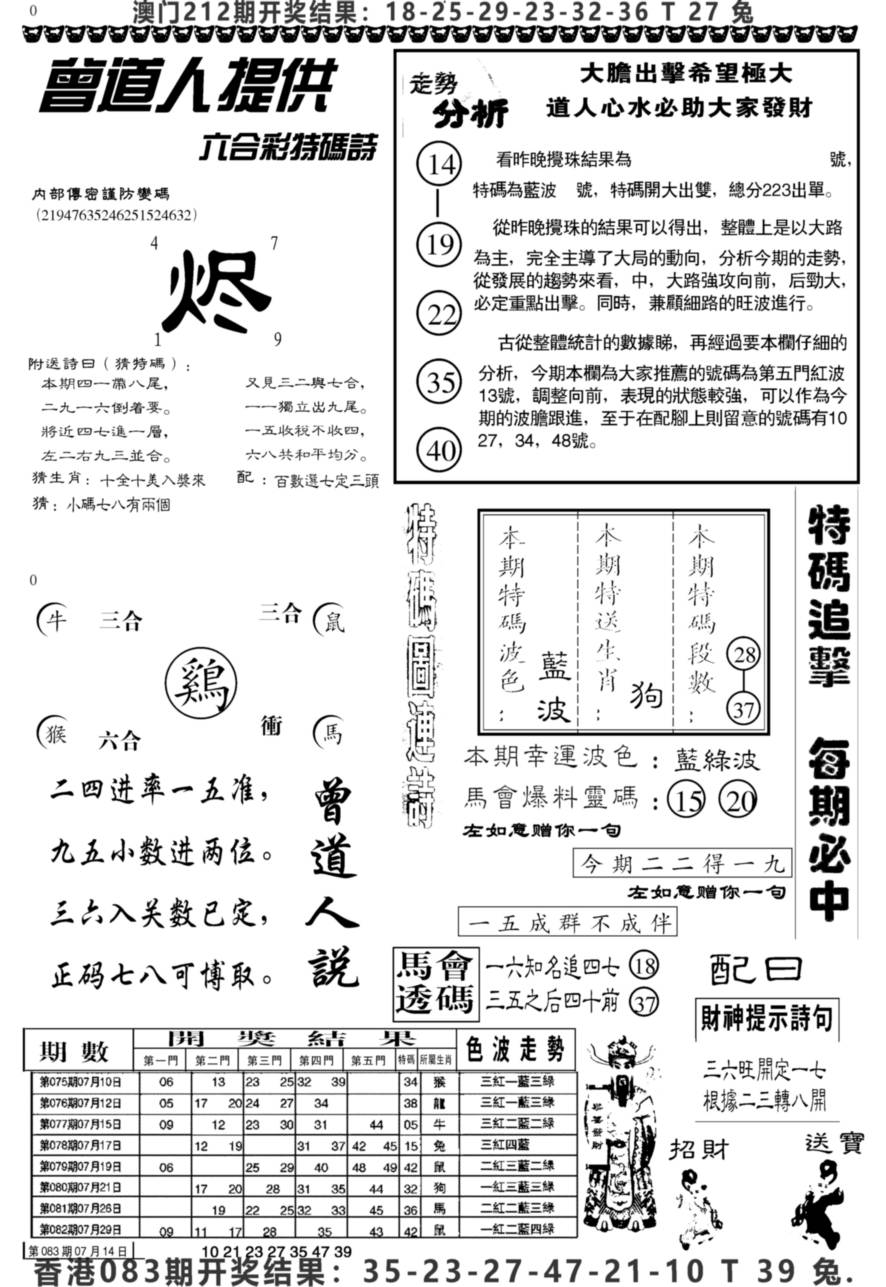 0
澳门212期开奖结果：18-25-29-23-32-36 T 27 兔
曾道人提供
六合彩特碼詩
内部傳密謹防變碼
（21947635246251524632）
4 7
烬
1 9
附送詩曰（猜特碼）：
本期四一肅八尾， 又見三二與七合，
二九一六倒着要。 一一獨立出九尾。
將近四七進一層， 一五收税不收四，
左二右九三並合。 六八共和平均分。
猜生肖：十全十美入獎來 配：百數選七定三頭
猜：小碼七八有兩個
走勢
分析
大膽出擊希望極大
道人心水必助大家發財
14
19
22
35
40
看昨晚攪珠結果為 號，
特碼為藍波 號，特碼開大出雙，總分223出單。
從昨晚攪珠的結果可以得出，整體上是以大路
為主，完全主導了大局的動向，分析今期的走勢，
從發展的趨勢來看，中，大路強攻向前，后勁大，
必定重點出擊。同時，兼顧細路的旺波進行。
古從整體統計的數據睇，再經過要本欄仔細的
分析，今期本欄為大家推薦的號碼為第五門紅波
13號，調整向前，表現的狀態較強，可以作為今
期的波膽跟進，至于在配腳上則留意的號碼有10
27，34，48號。
0
牛 三合 三合 鼠
鷄
猴 六合 衝 馬
二四进率一五准，
九五小数进两位。
三六入关数已定，
正码七八可博取。
曾道人説
特碼圖連詩
本期特碼波色：藍波
本期特送生肖：狗
本期特碼段數：28 37
本期幸運波色：藍綠波
馬會爆料靈碼：15 20
左如意赠你一句
今期二二得一九
左如意赠你一句
一五成群不成伴
特碼追擊 每期必中
馬會透碼
一六知名追四七 18
三五之后四十前 37
配曰
財神提示詩句
三六旺開定一七
根據二三轉八開
招財
送寶
期數 開獎結果 色波走勢
第一門 第二門 第三門 第四門 第五門 特碼 所屬生肖
第075期07月10日 06 13 23 25 32 39 34 猴 三紅一藍三綠
第076期07月12日 05 17 20 24 27 34 38 龍 三紅一藍三綠
第077期07月15日 09 12 23 30 31 44 05 牛 三紅二藍二綠
第078期07月17日 12 19 31 37 42 45 15 兔 三紅四藍
第079期07月19日 06 25 29 40 48 49 42 鼠 二紅三藍二綠
第080期07月21日 17 20 28 31 35 44 32 狗 一紅三藍三綠
第081期07月26日 19 22 25 32 33 45 36 馬 二紅二藍三綠
第082期07月29日 09 11 17 28 35 43 42 鼠 一紅二藍四綠
第083期07月14日 10 21 23 27 35 47 39
香港083期开奖结果：35-23-27-47-21-10 T 39 兔.